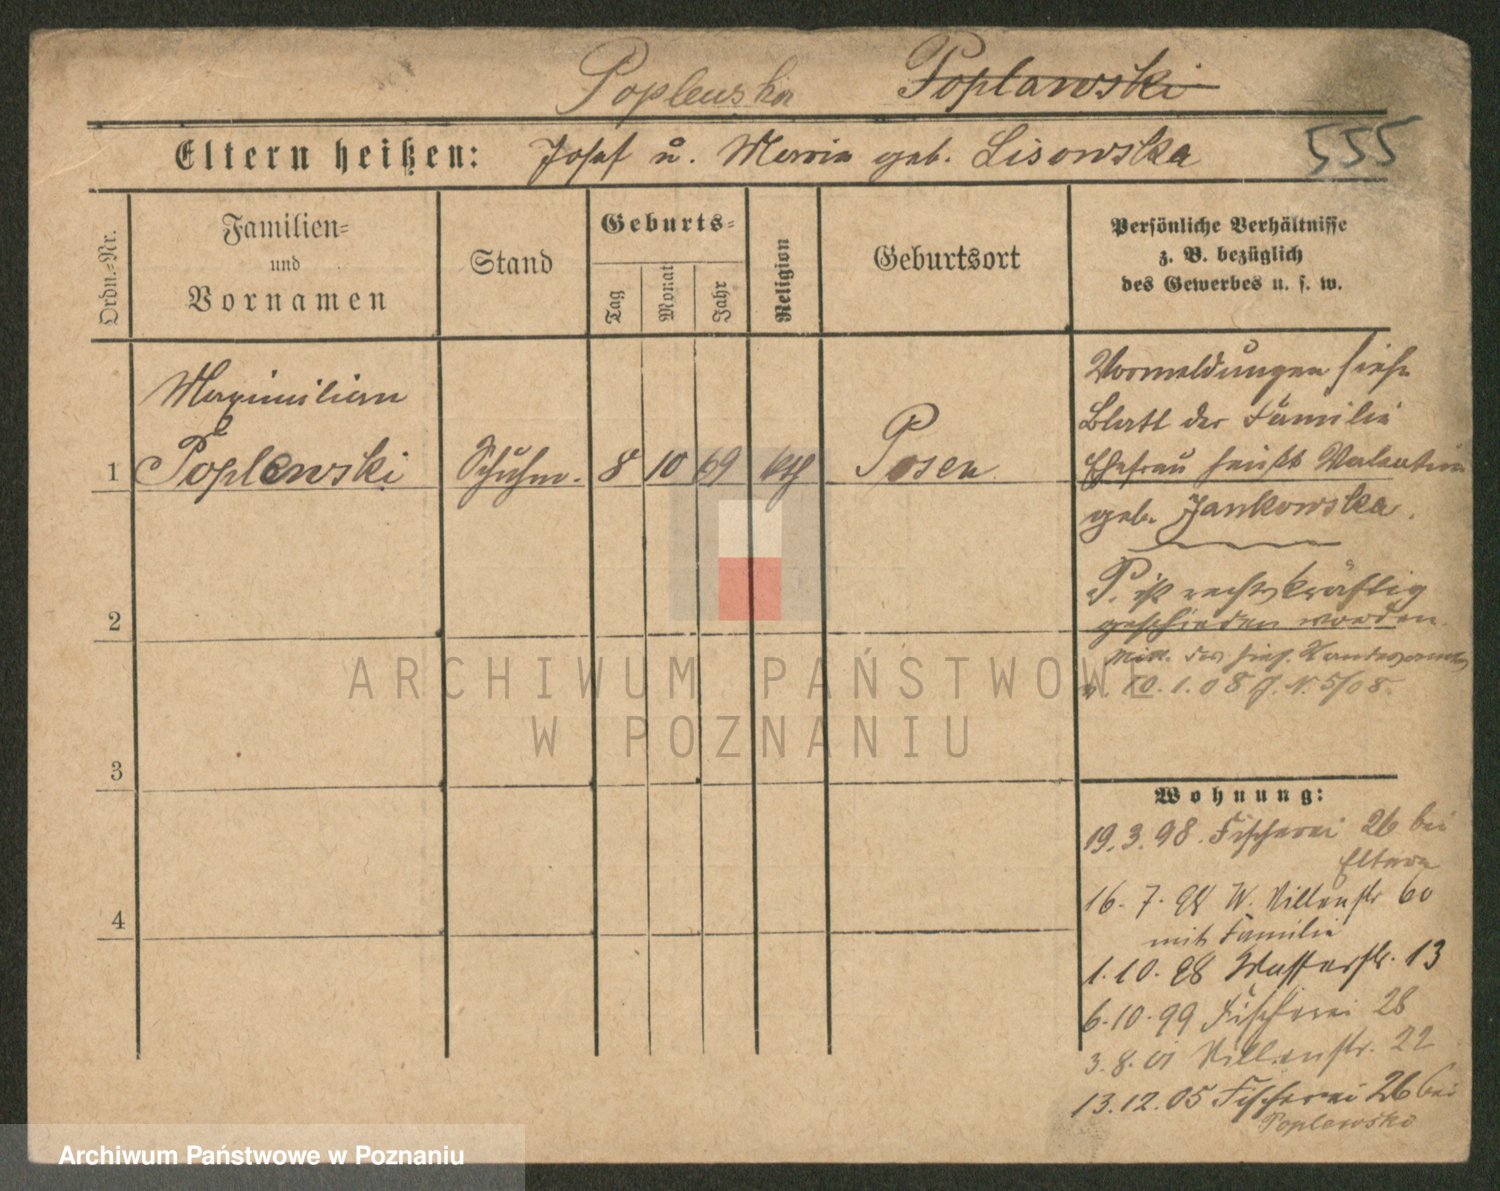 Poplewska Poplawski
Eltern heißen: Josef u. Maria geb. Lisowska 555
Ordn.-Nr.
Familien-
und
Vornamen
Stand
Geburts-
Tag
Monat
Jahr
Religion
Geburtsort
Persönliche Verhältnisse
z. B. bezüglich
des Gewerbes u. s. w.
Maximilian
1 Poplewski Schuhm. 8 10 69 kth Posen
2
3
4
Vormeldungen siehe
Blatt der Familie
Ehefrau heißt Valentine
geb. Jankowska.
P. ist rechtskräftig
geschieden worden.
Mitt. des hies. Standesamtes
v. 10.1.08 J. N. 5/08.
Wohnung:
19.3.98. Fischerei 26 bei
Eltern
16.7.98 W. Villenstr 60
mit Familie
1.10.98 Wasserstr. 13
6.10.99 Fischerei 28
3.8.01 Villenstr. 22
13.12.05 Fischerei 26 bei
Poplawski
ARCHIWUM PAŃSTWOWE
W POZNANIU
Archiwum Państwowe w Poznaniu